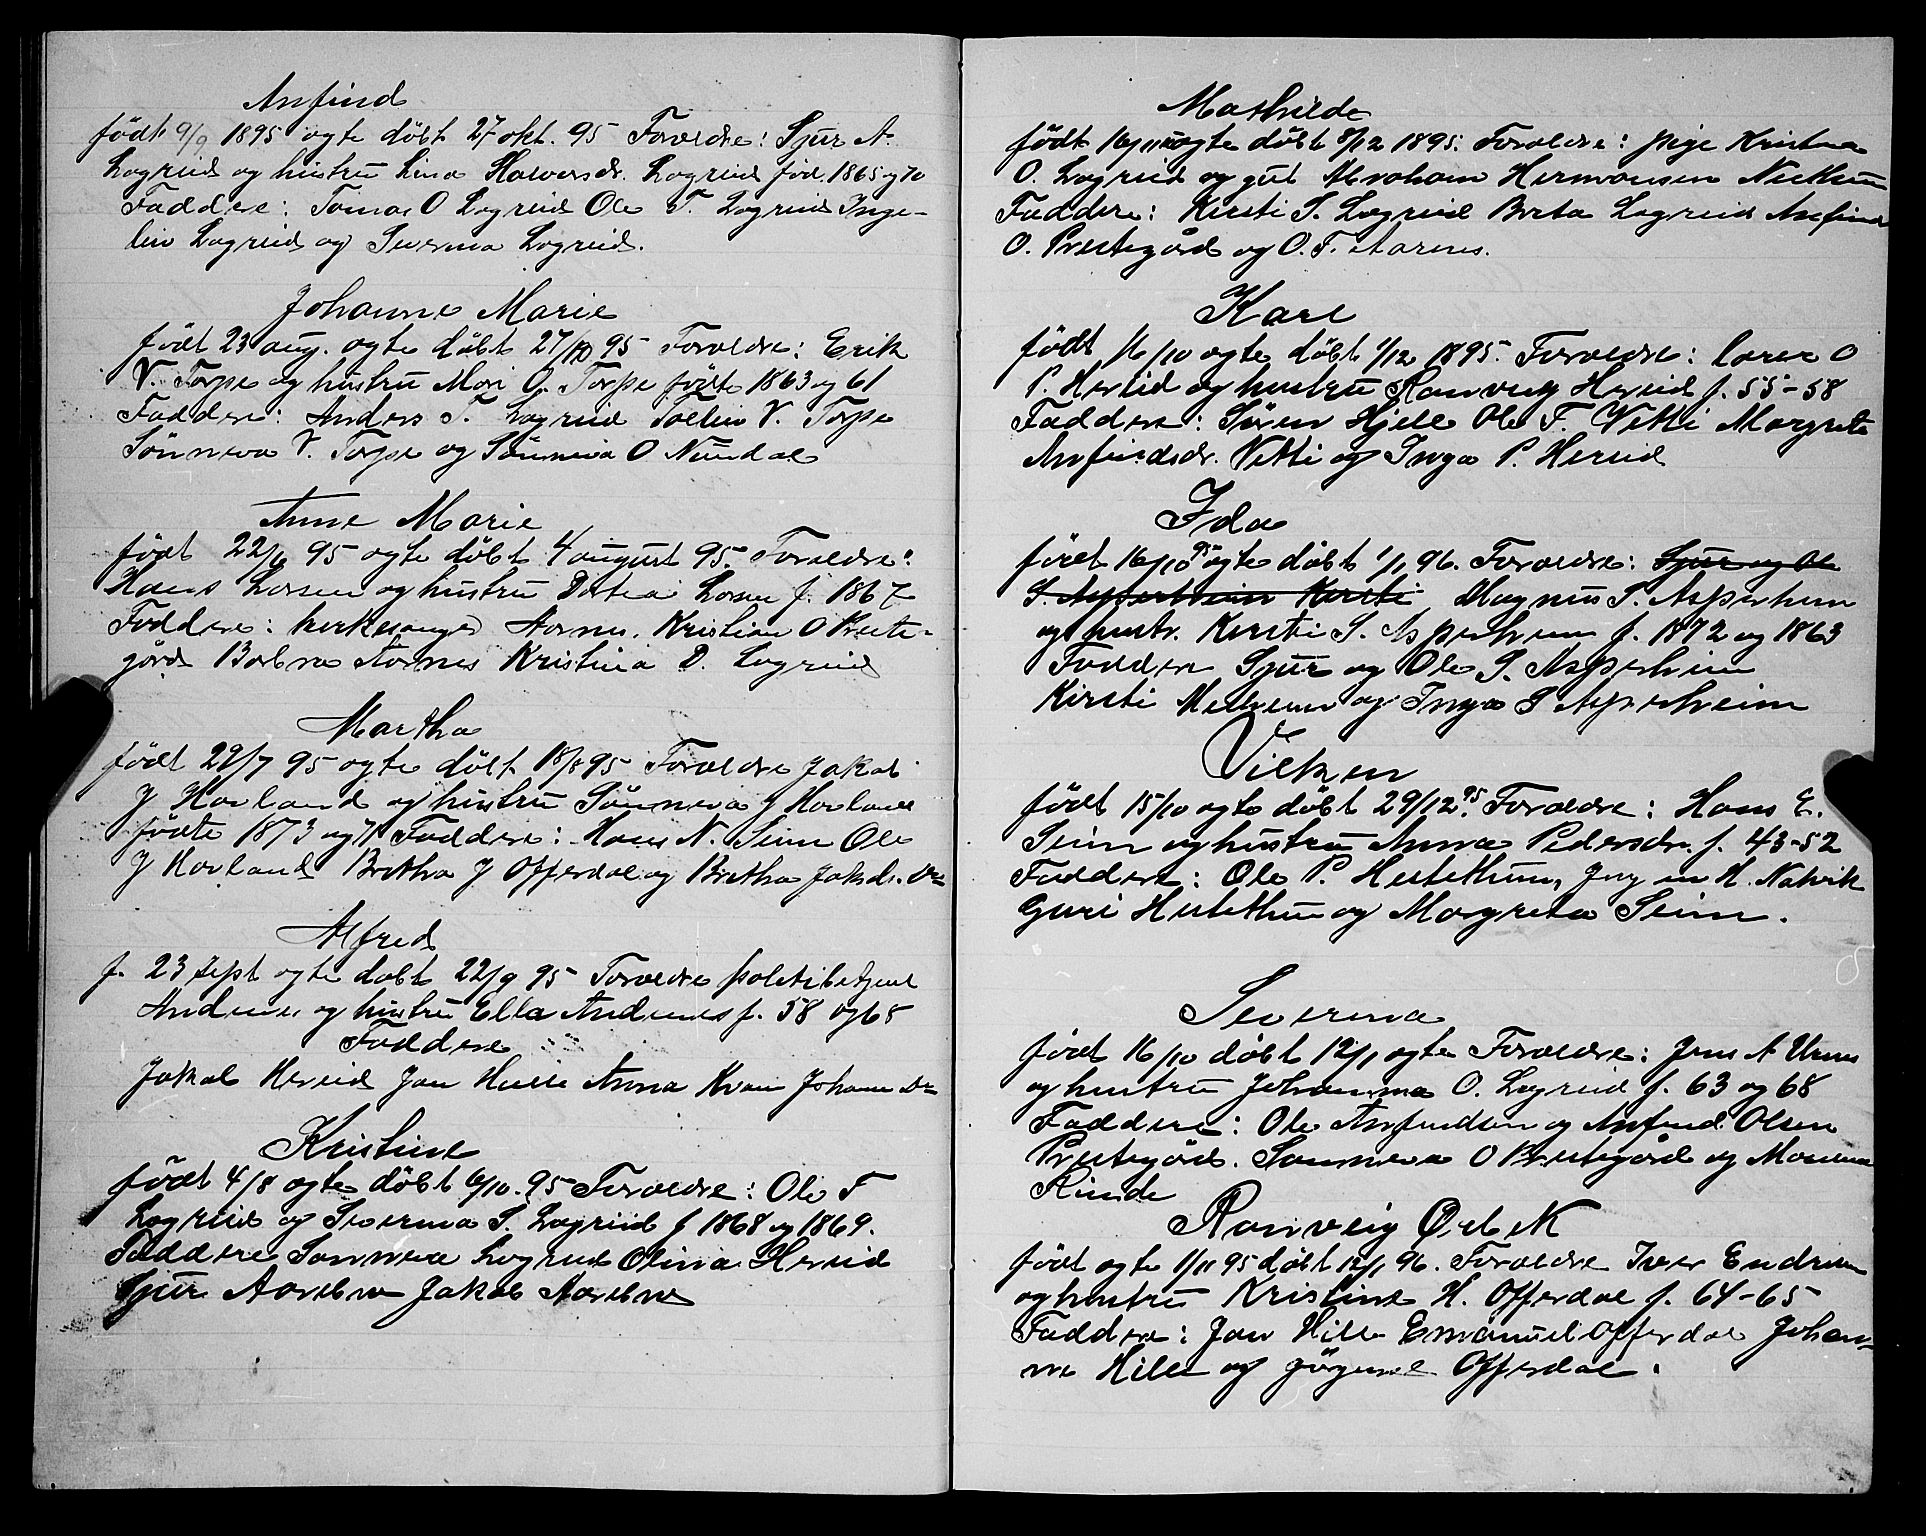 Anfind
født 9/9 1895 ogte døbt 27 okt. 95 Foroldre: Sjur A.
Lægreid og hustru Lina Halvorsdr. Lægreid fød. 1865 og 70
Faddere: Tomas O Lægreid Ole T. Lægreid Inge-
lin Lægreid og Severina Lægreid.
Johanne Marie
født 23 aug. ogte døbt 27/10 95 Foroldre: Erik
V. Torpe og hustru Mari O. Torpe fødte 1863 og 61
Faddere: Anders T. Lægreid Tollin V. Torpe
Sønneva V. Torpe og Sønneva O Nundal
Anne Marie
født 22/6 95 ogte døbt 4 august 95. Foroldre:
Hans Larsen og hustru Dortea Larsen f. 1867
Faddere: kirkesanger Aarnes. Kristian O Preste-
gård Barbra Aarnes Kristina D. Lægreid
Martha
født 22/7 95 ogte døbt 18/8 95 Foroldre Jakob
J Hovland og hustru Sønneva J Hovland
fødte 1873 og 71 Faddere: Hans N. Seim Ole
J Hovland Britha J Offerdal og Britha Jakdr.
Alfred
f. 23 sept ogte døbt 22/9 95 Foroldre politibetjent
Andenes og hustru Ella Andenes f. 58 og 65
Faddere
Jakob Hereid Jan Hille Anna Kvam Johanne
Kristine
født 4/8 ogte døbt 6/10. 95 Foroldre: Ole T
Lægreid og Severina S. Lægreid f 1868 og 1869.
Faddere Sønneva Lægreid Olina Hereid
Sjur Aarebru Jakob Aarebru
Mathilde
født 16/11 uogte døbt 8/12 1895. Foroldre: pige Kristina
O. Lægreid og gut Abraham Hermansen
Faddere: Kirsti S. Lægreid Brita Lægreid Anfind
O. Prestegård og O. T. Aarnes.
Karl
født 16/10 ogte døbt 1/12 1895. Foroldre: larer O
P. Hereid og hustru Ranveig Hereid f. 55-58
Faddere: Søren Hjelle Ole T. Vetti Margrete
Anfindsdr. Vetti og Inga P. Hereid
Ida
født 16/10 95 ogte døbt 1/1 96. Foroldre: Sjur og Ole
S. Asperheim Kirsti Magnus S. Asperheim
og hustr. Kirsti S. Asperheim f. 1872 og 1863
Faddere Sjur og Ole S. Asperheim
Kirsti Melheim og Inga S Asperheim
Vilken
født 15/10 ogte døbt 29/12 95. Foroldre: Hans E.
Seim og hustru Anna Pedersdr. f. 43-52
Faddere: Ole P. Hestethun, H. Natvik
Guri Hestethun og Margreta Seim.
Severina
født 16/10 døbt 12/1 ogte Foroldre: Jens A
og hustru Johanna O. Lægreid f. 63 og 68
Faddere: Ole Anfindsen og Anfind Olsen
Prestegård. Sønneva O Prestegård og
Rinde
Ranveig Ørbek
født ogte 1/11 95 døbt 12/1 96. Foroldre Iver Endresen
og hustru Kristine H. Offerdal f. 64-65
Faddere: Jan Hille Emanuel Offerdal Johan-
ne Hille og Jørgine Offerdal.